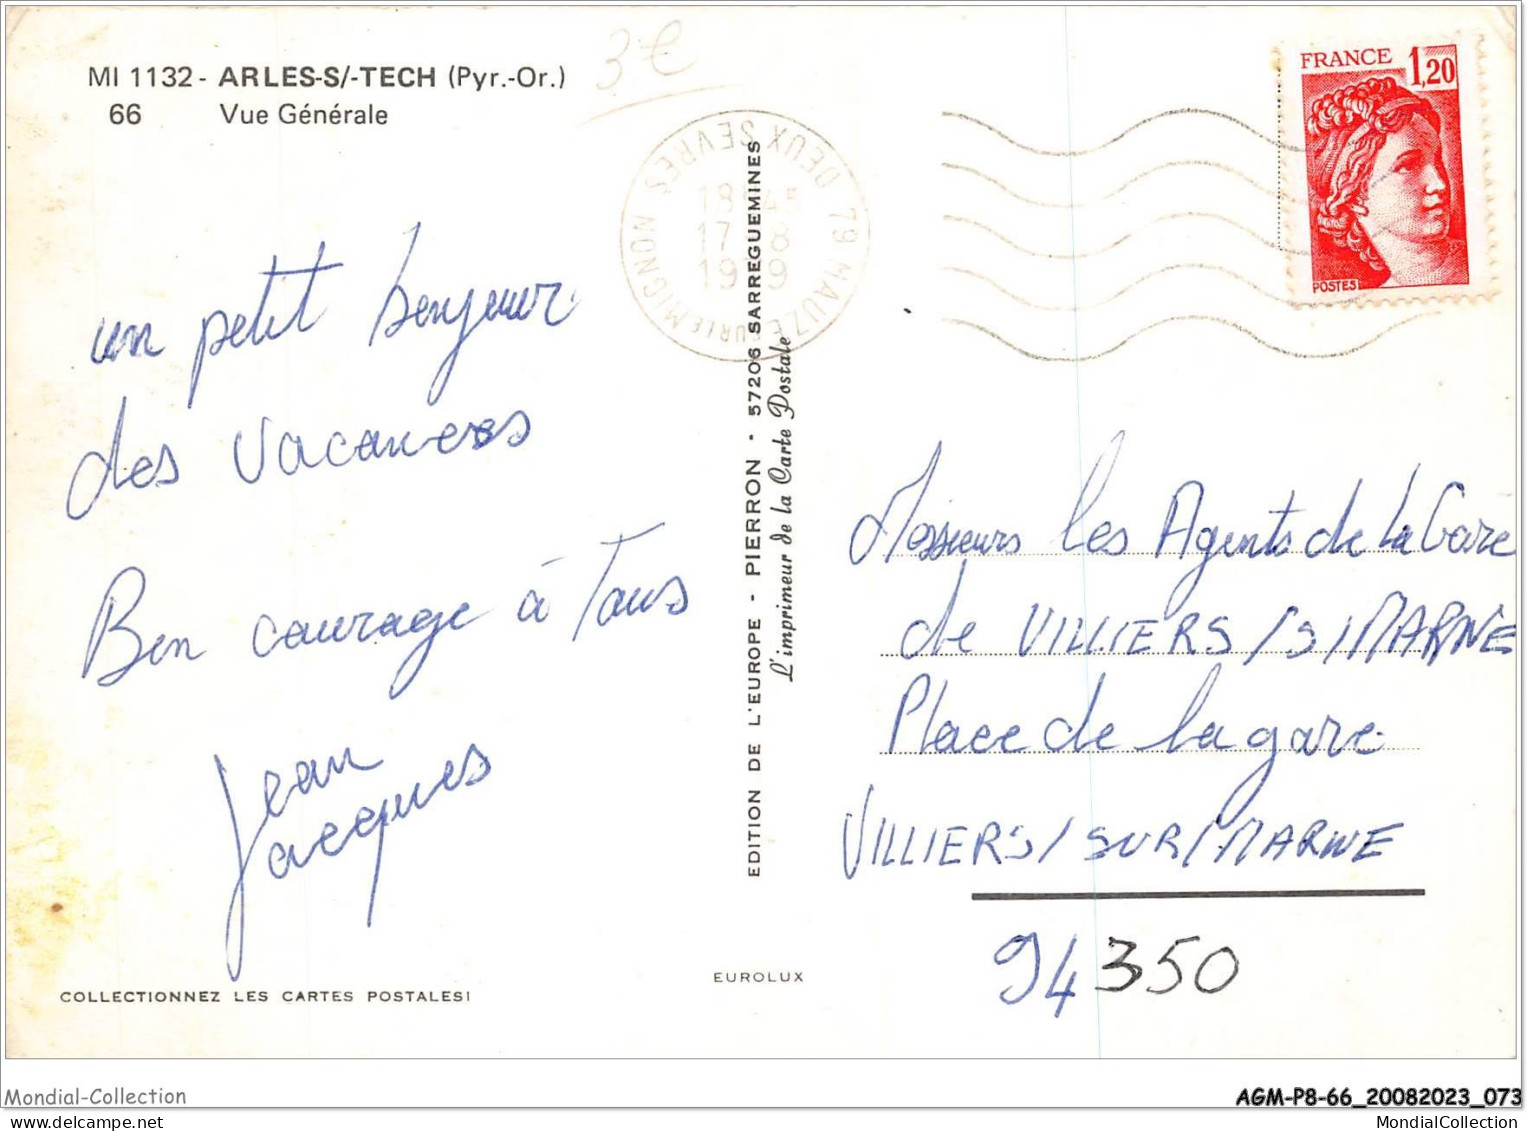 MI 1132 - ARLES-S/-TECH (Pyr.-Or.)
66 Vue Générale
3€
79 MAUZE SUR LE MIGNON
DEUX SEVRES
18 45
17 8
1979
FRANCE 1,20
POSTES
un petit bonjour
des vacances
Bon courage à Tous
Jean
Jacques
EDITION DE L'EUROPE - PIERRON - 57206 SARREGUEMINES
L'imprimeur de la Carte Postale
Messieurs les Agents de La Gare
de VILLIERS/S/MARNE
Place de la gare
VILLIERS/SUR/MARNE
94350
EUROLUX
COLLECTIONNEZ LES CARTES POSTALES!
Mondial-Collection
AGM-P8-66_20082023_073
MondialCollection